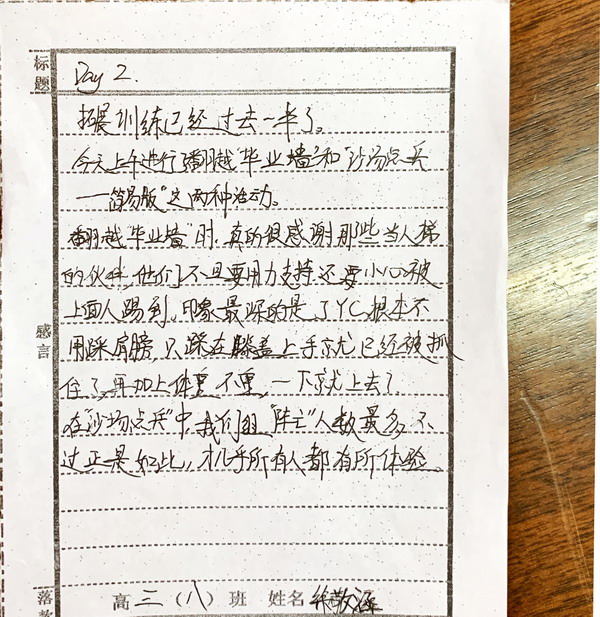 标题
Day 2.
拓展训练已经过去一半了。
今天上午进行了翻越"毕业墙"和"沙场点兵
——简易版"这两种活动。
翻越"毕业墙"时,真的很感谢那些当人梯
的伙伴,他们不但要用力支持还要小心被
上面人踢到,印象最深的是了YC,根本不
用踩肩膀,只踩在膝盖上手就已经被抓
住了,再加上体重不重,一下就上去了。
在"沙场点兵"中,我们组"阵亡"人数最多,不
过正是如此,才几乎所有人都有所体验
感言
落款
高三(八)班 姓名 敬涵